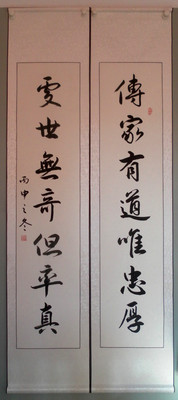 傳家有道唯忠厚
處世無奇但率真
丙申之冬